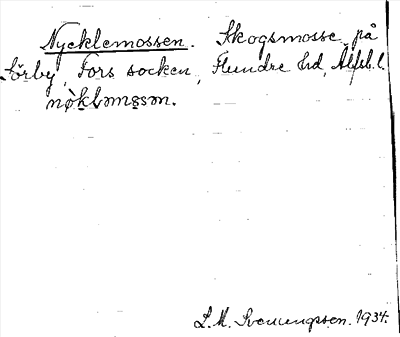 Nycklemossen. Skogsmosse på
Sörby, Fors socken, Flundre hrd, Älfsb. l.
nø̀k̬ləmɷsən.
L. M. Svenungsson. 1934.